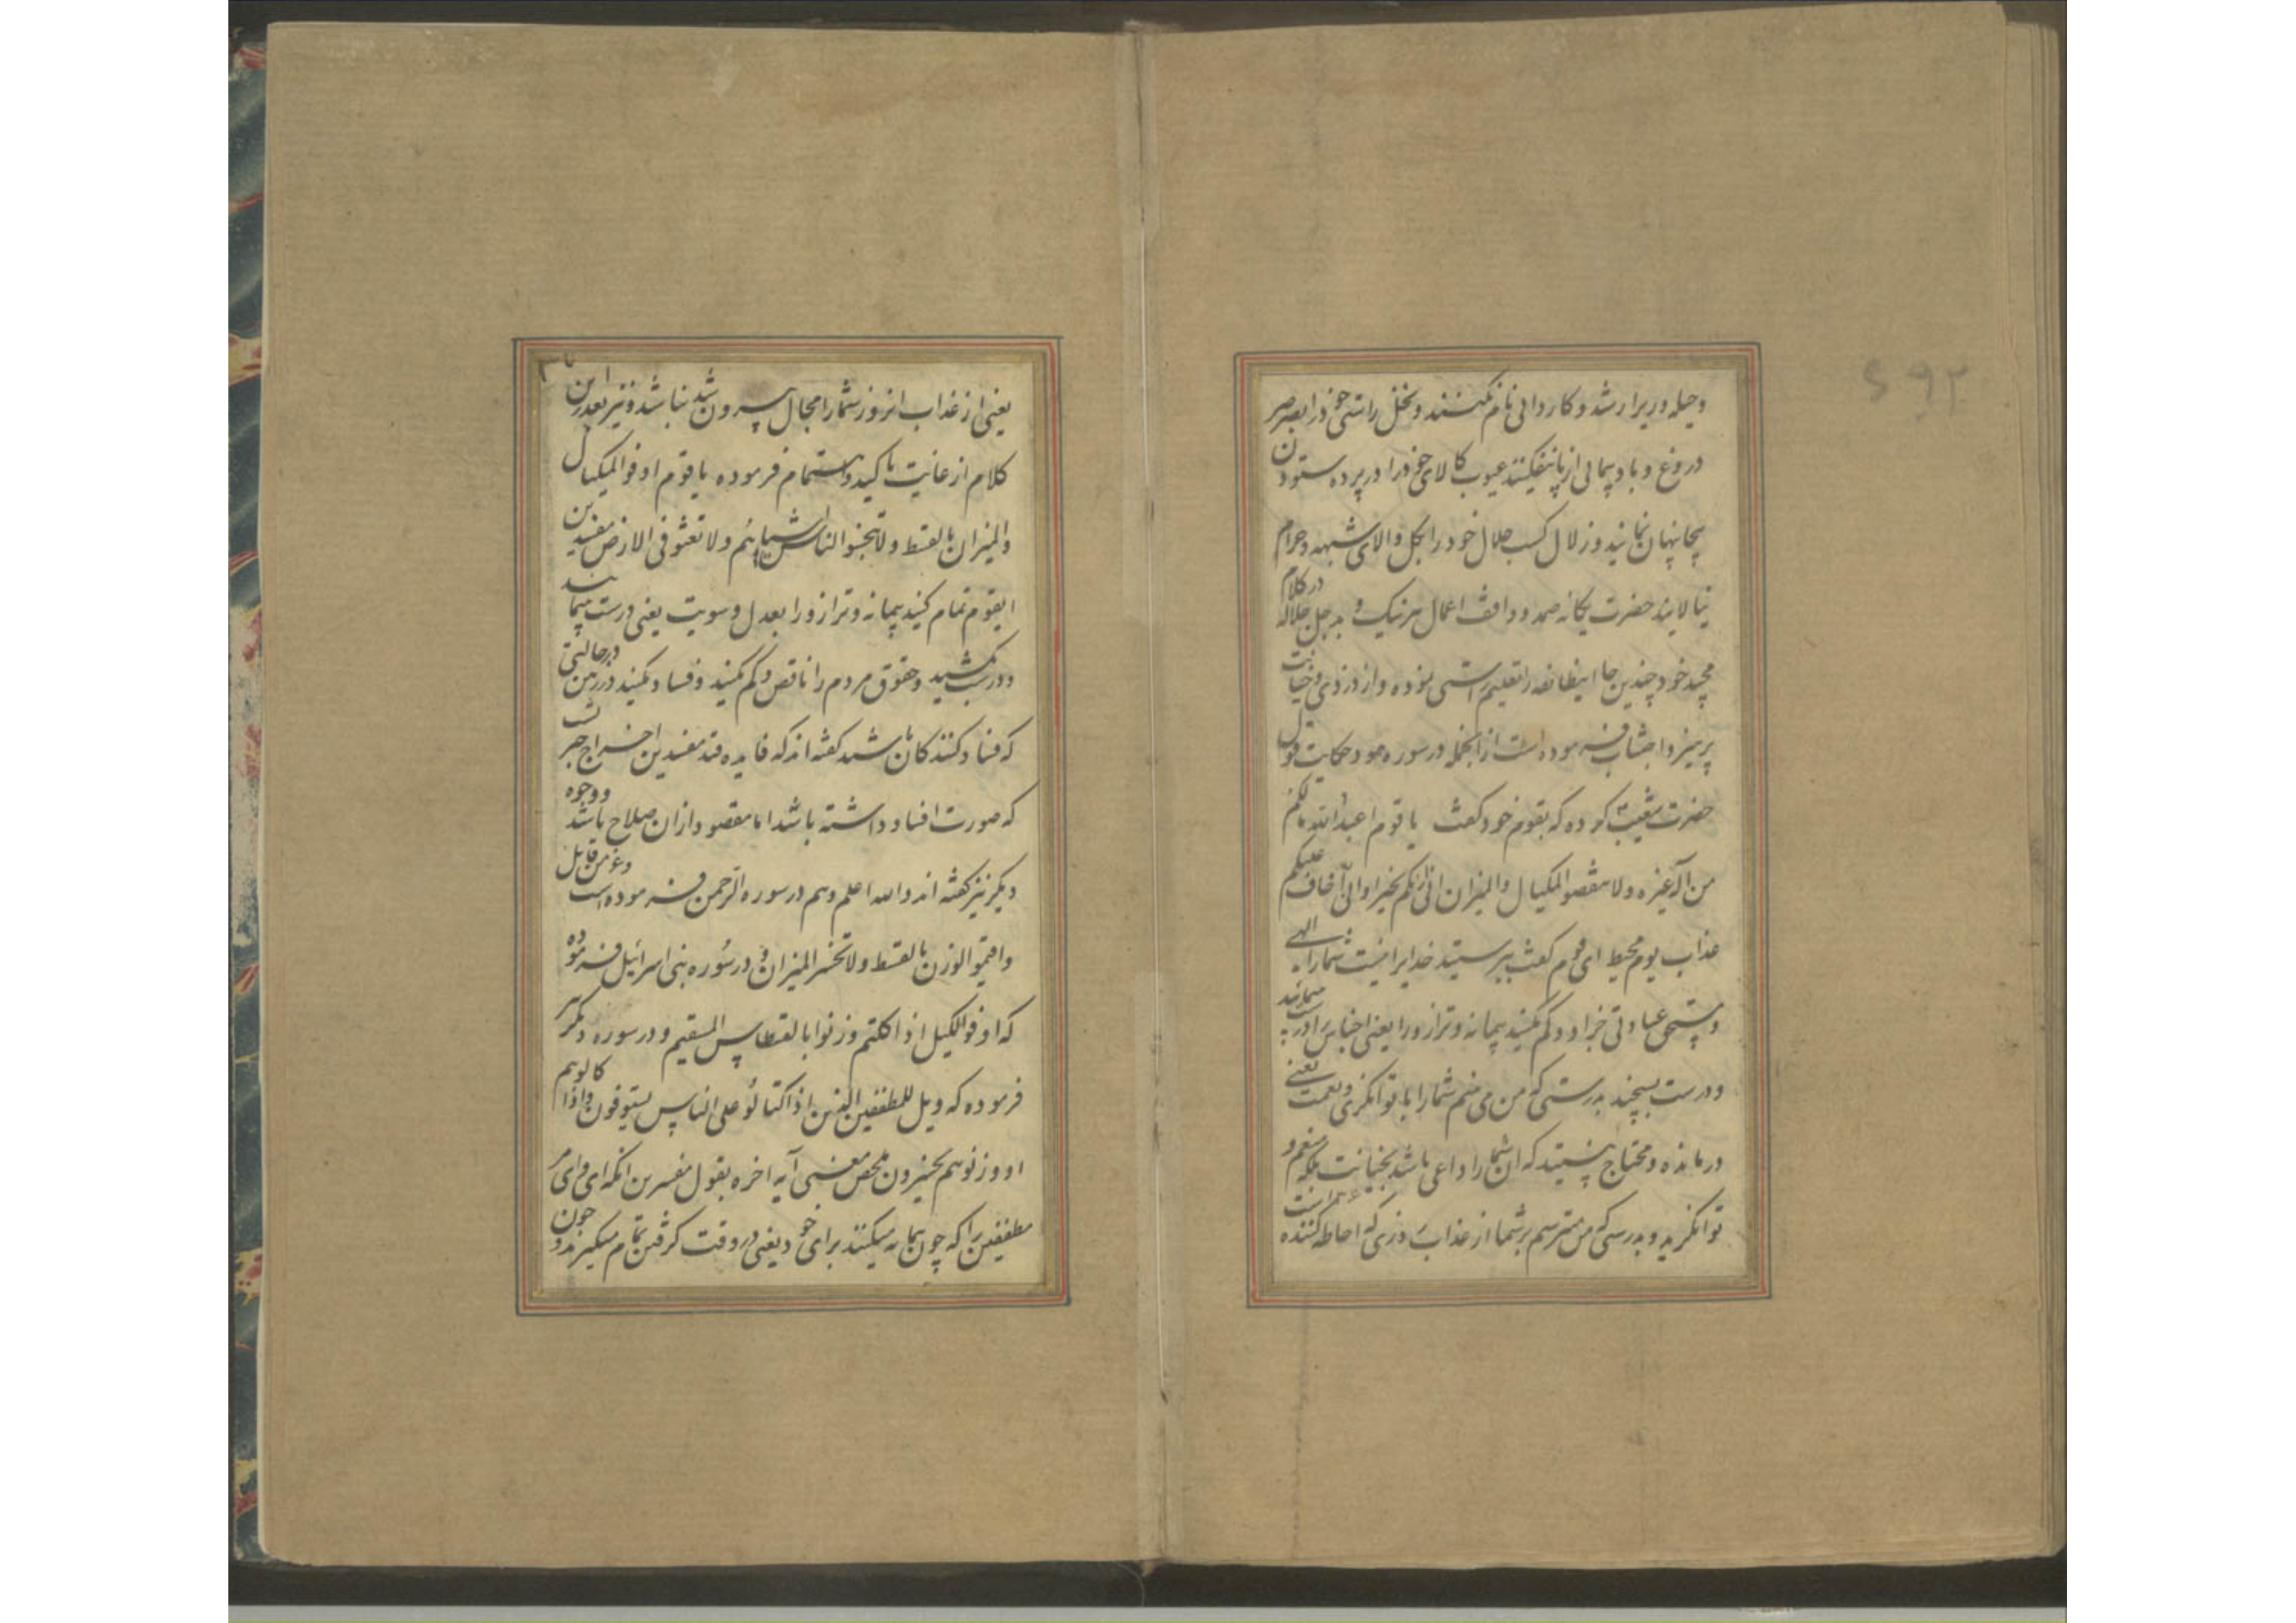 وحیله وریرا رشد و کاردانی نام نکنند و نخل راستی خود را بصرصر
دروغ و باد پیمائی از پا نیفکنند عیوب کالای خود را در پرده ستودن
پنهان ننمایند و زلال کسب حلال خود را بگل و الای شبهه و حرام
نیالایند حضرت یگانه صمد و واقف اعمال هر نیک و بد جل جلاله در کلام
مجید خود چندین جا اینطائفه را تعلیم راستی نموده و از دزدی و خیانت
پرهیز و اجتناب فرموده است ازانجمله در سوره هود حکایت قول
حضرت شعیب کرده که بقوم خود گفت یا قوم اعبدالله مالکم
من اله غیره ولا تنقصو المکیال والمیزان انی اریکم بخیر وانی اخاف علیکم
عذاب یوم محیط ای قوم گفت بپرستید خدایرا نیست شمارا الهی
ومستحق عبادتی جز او و کم نکنید پیمانه و ترازو را یعنی اجناس را درست پیمایید
و درست بسنجید بدرستی که من می بینم شمارا با توانگری و نعمت یعنی
درمانده و محتاج نیستید که ان شما را داعی باشد بخیانت بلکه منعم و
توانگرید و بدرستی که من میترسم بر شما از عذاب روزی که احاطه کننده است
یعنی از عذاب انروز شمارا مجال بیرون شد نباشد و نیز بعد ازین
کلام از غایت تاکید و اهتمام فرموده یا قوم اوفوا المکیال
والمیزان بالقسط ولا تبخسو الناس اشیائهم ولا تعثو فی الارض مفسدین
ایقوم تمام کنید پیمانه و ترازو را بعدل و سویت یعنی درست پیمایند
و درست بکشید و حقوق مردم را ناقص و کم نکنید و فساد نکنید در زمین در حالتی
که فساد کنندگان باشید گفته اند که فایده قید مفسدین اخراج چیزیست
که صورت افساد داشته باشد اما مقصود ازان صلاح باشد و وجوه
دیگر نیز گفته اند والله اعلم و هم در سوره الرحمن فرموده است وعز من قایل
واقیموا الوزن بالقسط ولا تخسر المیزان و در سوره بنی اسرائیل فرموده
که اوفوا الکیل اذا کلتم وزنوا بالقسطاس المستقیم و در سوره دیگر
فرموده که ویل للمطففین الذین اذا اکتالو علی الناس یستوفون واذا کالوهم
او وزنوهم یخسرون محض معنی آیه اخره بقول مفسرین انکه ای وای مر
مطففین را که چون پیمانه میکنند برای خود یعنی در وقت گرفتن تمام میگیرند و چون